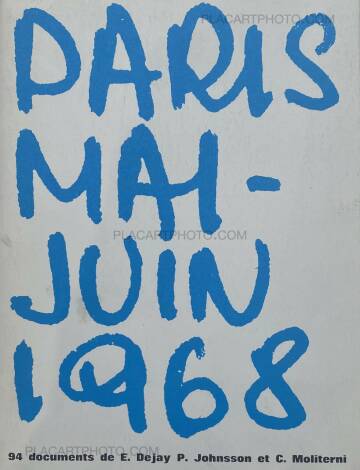 PLACARTPHOTO.COM
PARIS
MAI-
PLACARTPHOTO.COM
JUIN
1968
PLACARTPHOTO.COM
94 documents de E. Dejay P. Johnsson et C. Moliterni